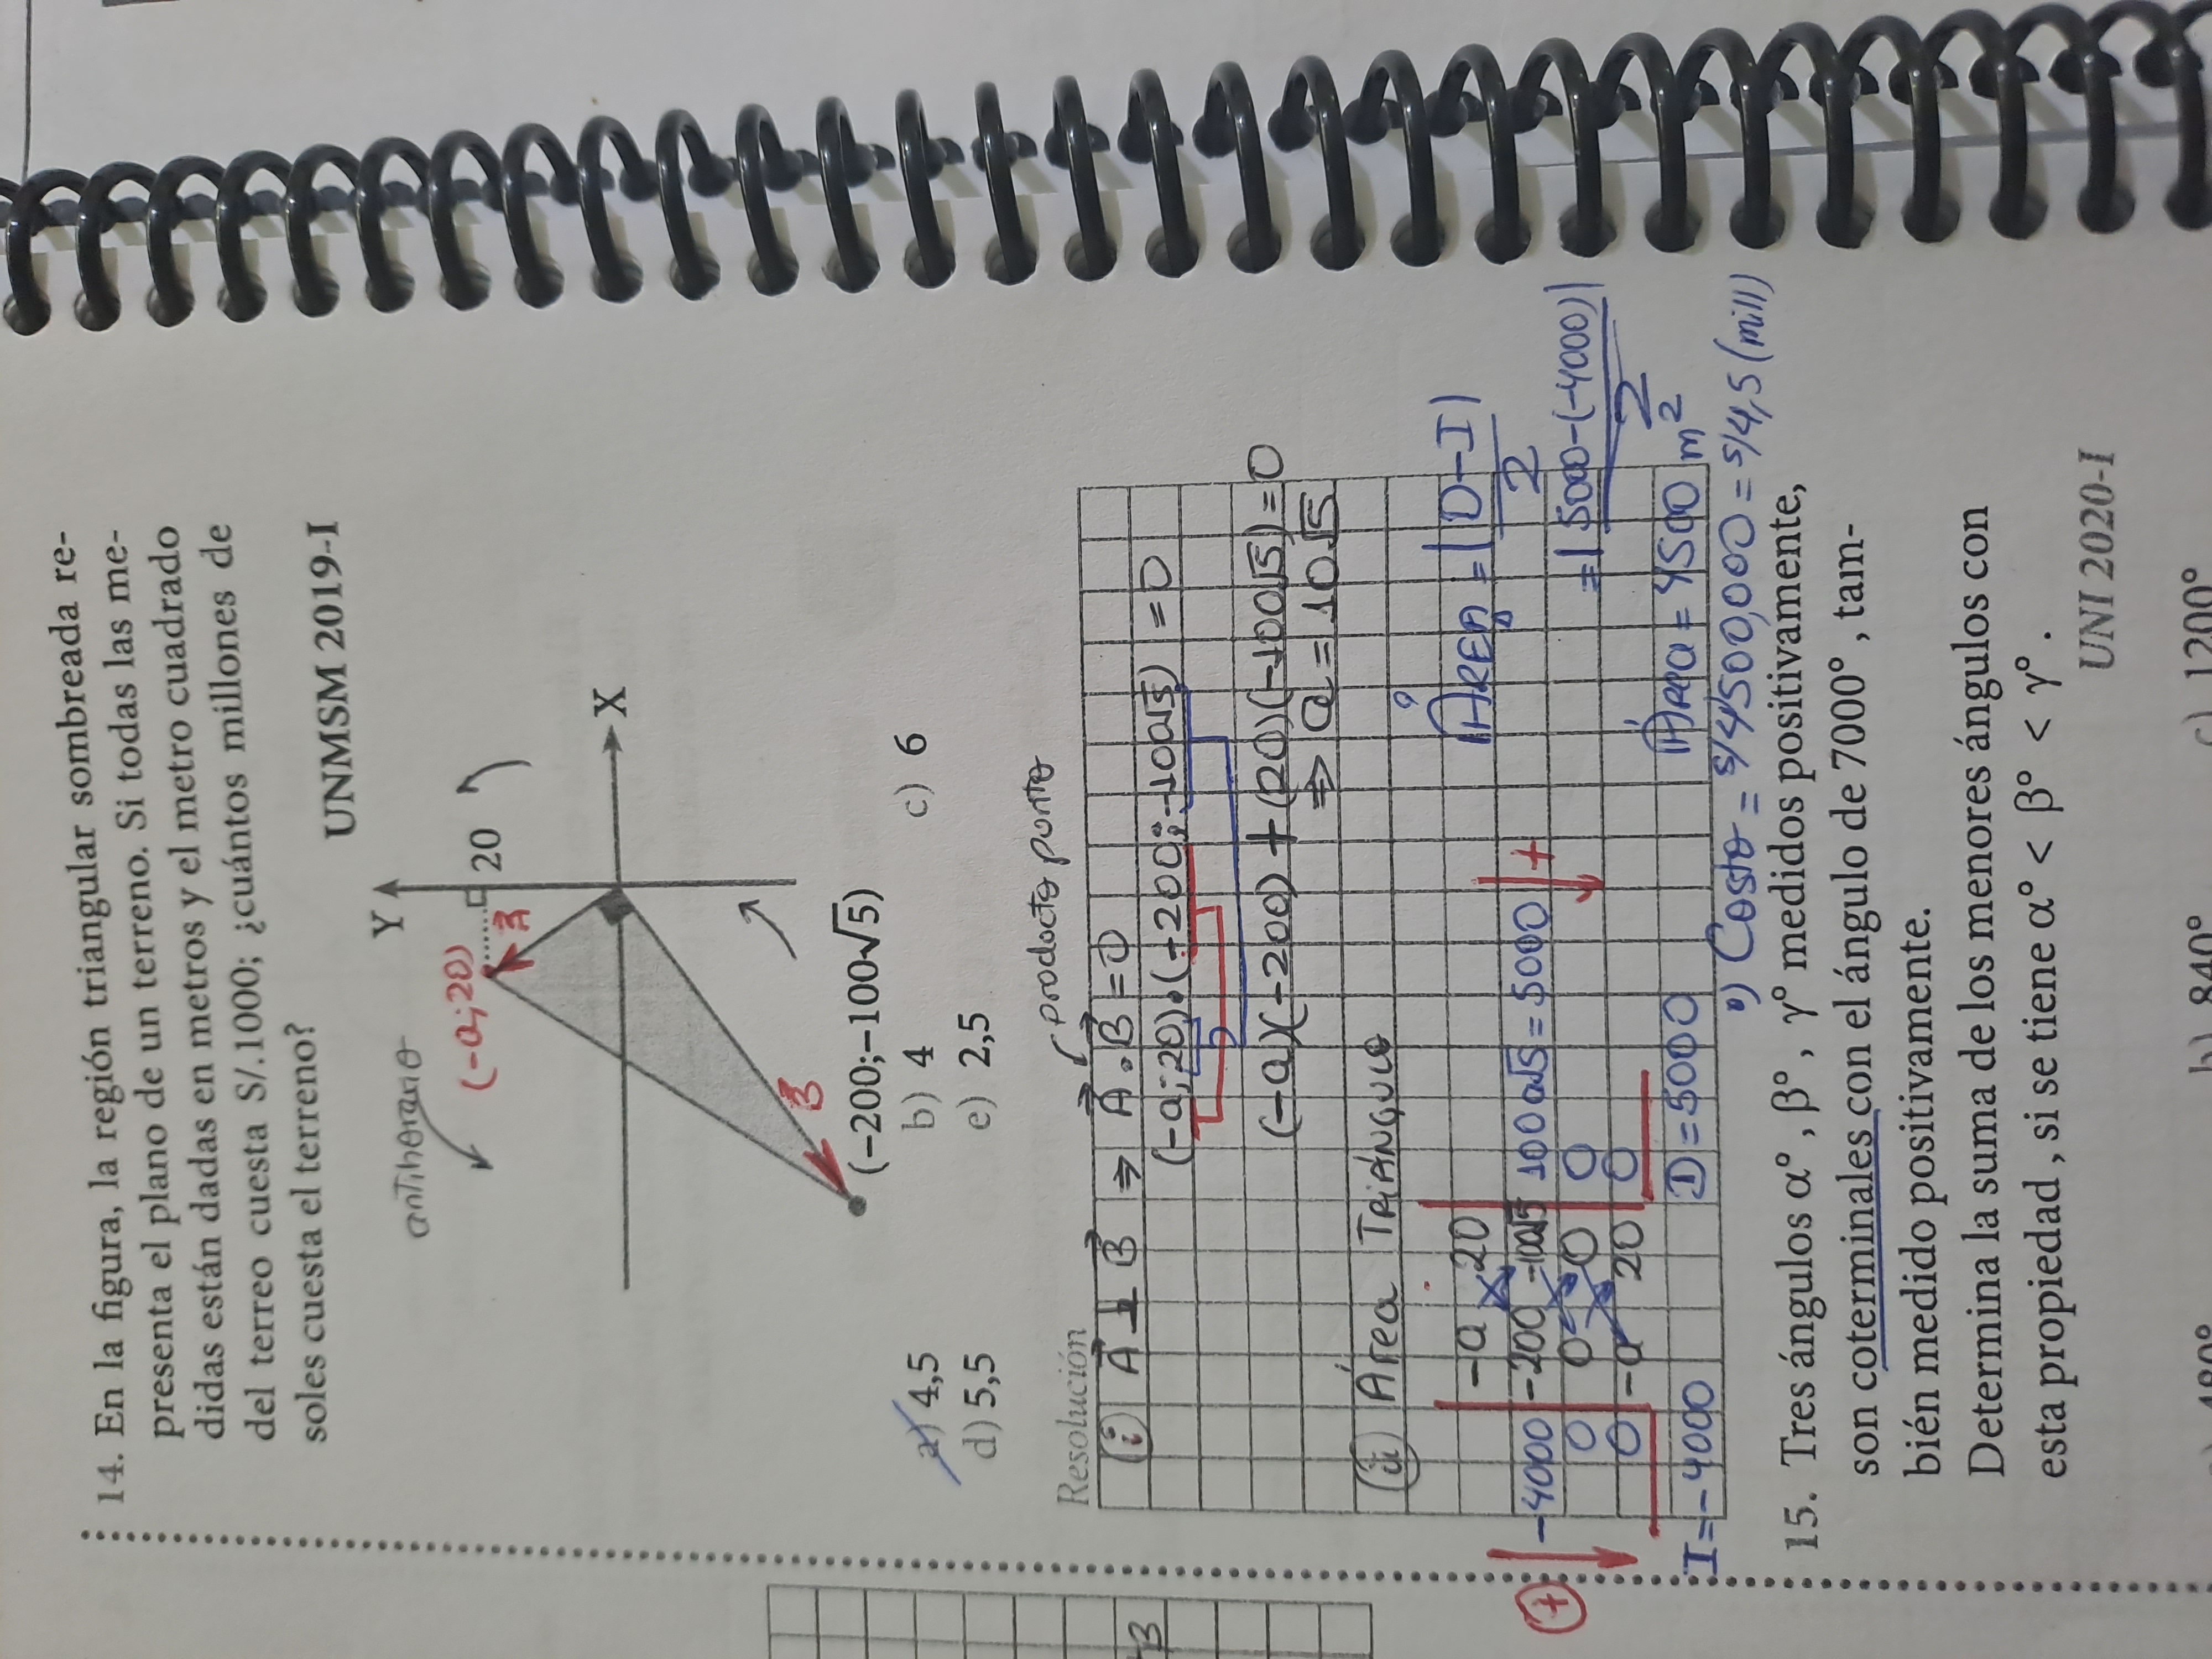 14. En la figura, la región triangular sombreada re-
presenta el plano de un terreno. Si todas las me-
didas están dadas en metros y el metro cuadrado
del terreo cuesta S/.1000; ¿cuántos millones de
soles cuesta el terreno?
UNMSM 2019-I
Y
antihorario
(-a;20)
20
A
X
B
(−200;−100√5)
a) 4,5
b) 4
c) 6
d) 5,5
e) 2,5
producto punto
Resolución
i A ⊥ B ⇒ A . B = 0
(-a;20).(-200;-100√5) = 0
(-a)(-200) + (20)(-100√5) = 0
⇒ a = 10√5
ii Área TRIÁNGULO
-a 20
-4000 -200 -100√5 100a√5 = 5000 +
+
0 0 0 0
0 -a 20 0
I = -4000 D = 5000
ÁREA△ = |D-I|
2
= |5000-(-4000)|
2
Área = 4500 m²
Costo = S/4'500,000 = S/4,5 (mill)
3
15. Tres ángulos α° , β° , γ° medidos positivamente,
son coterminales con el ángulo de 7000° , tam-
bién medido positivamente.
Determina la suma de los menores ángulos con
esta propiedad , si se tiene α° < β° < γ° .
UNI 2020-I
480°
b) 840°
c) 1200°